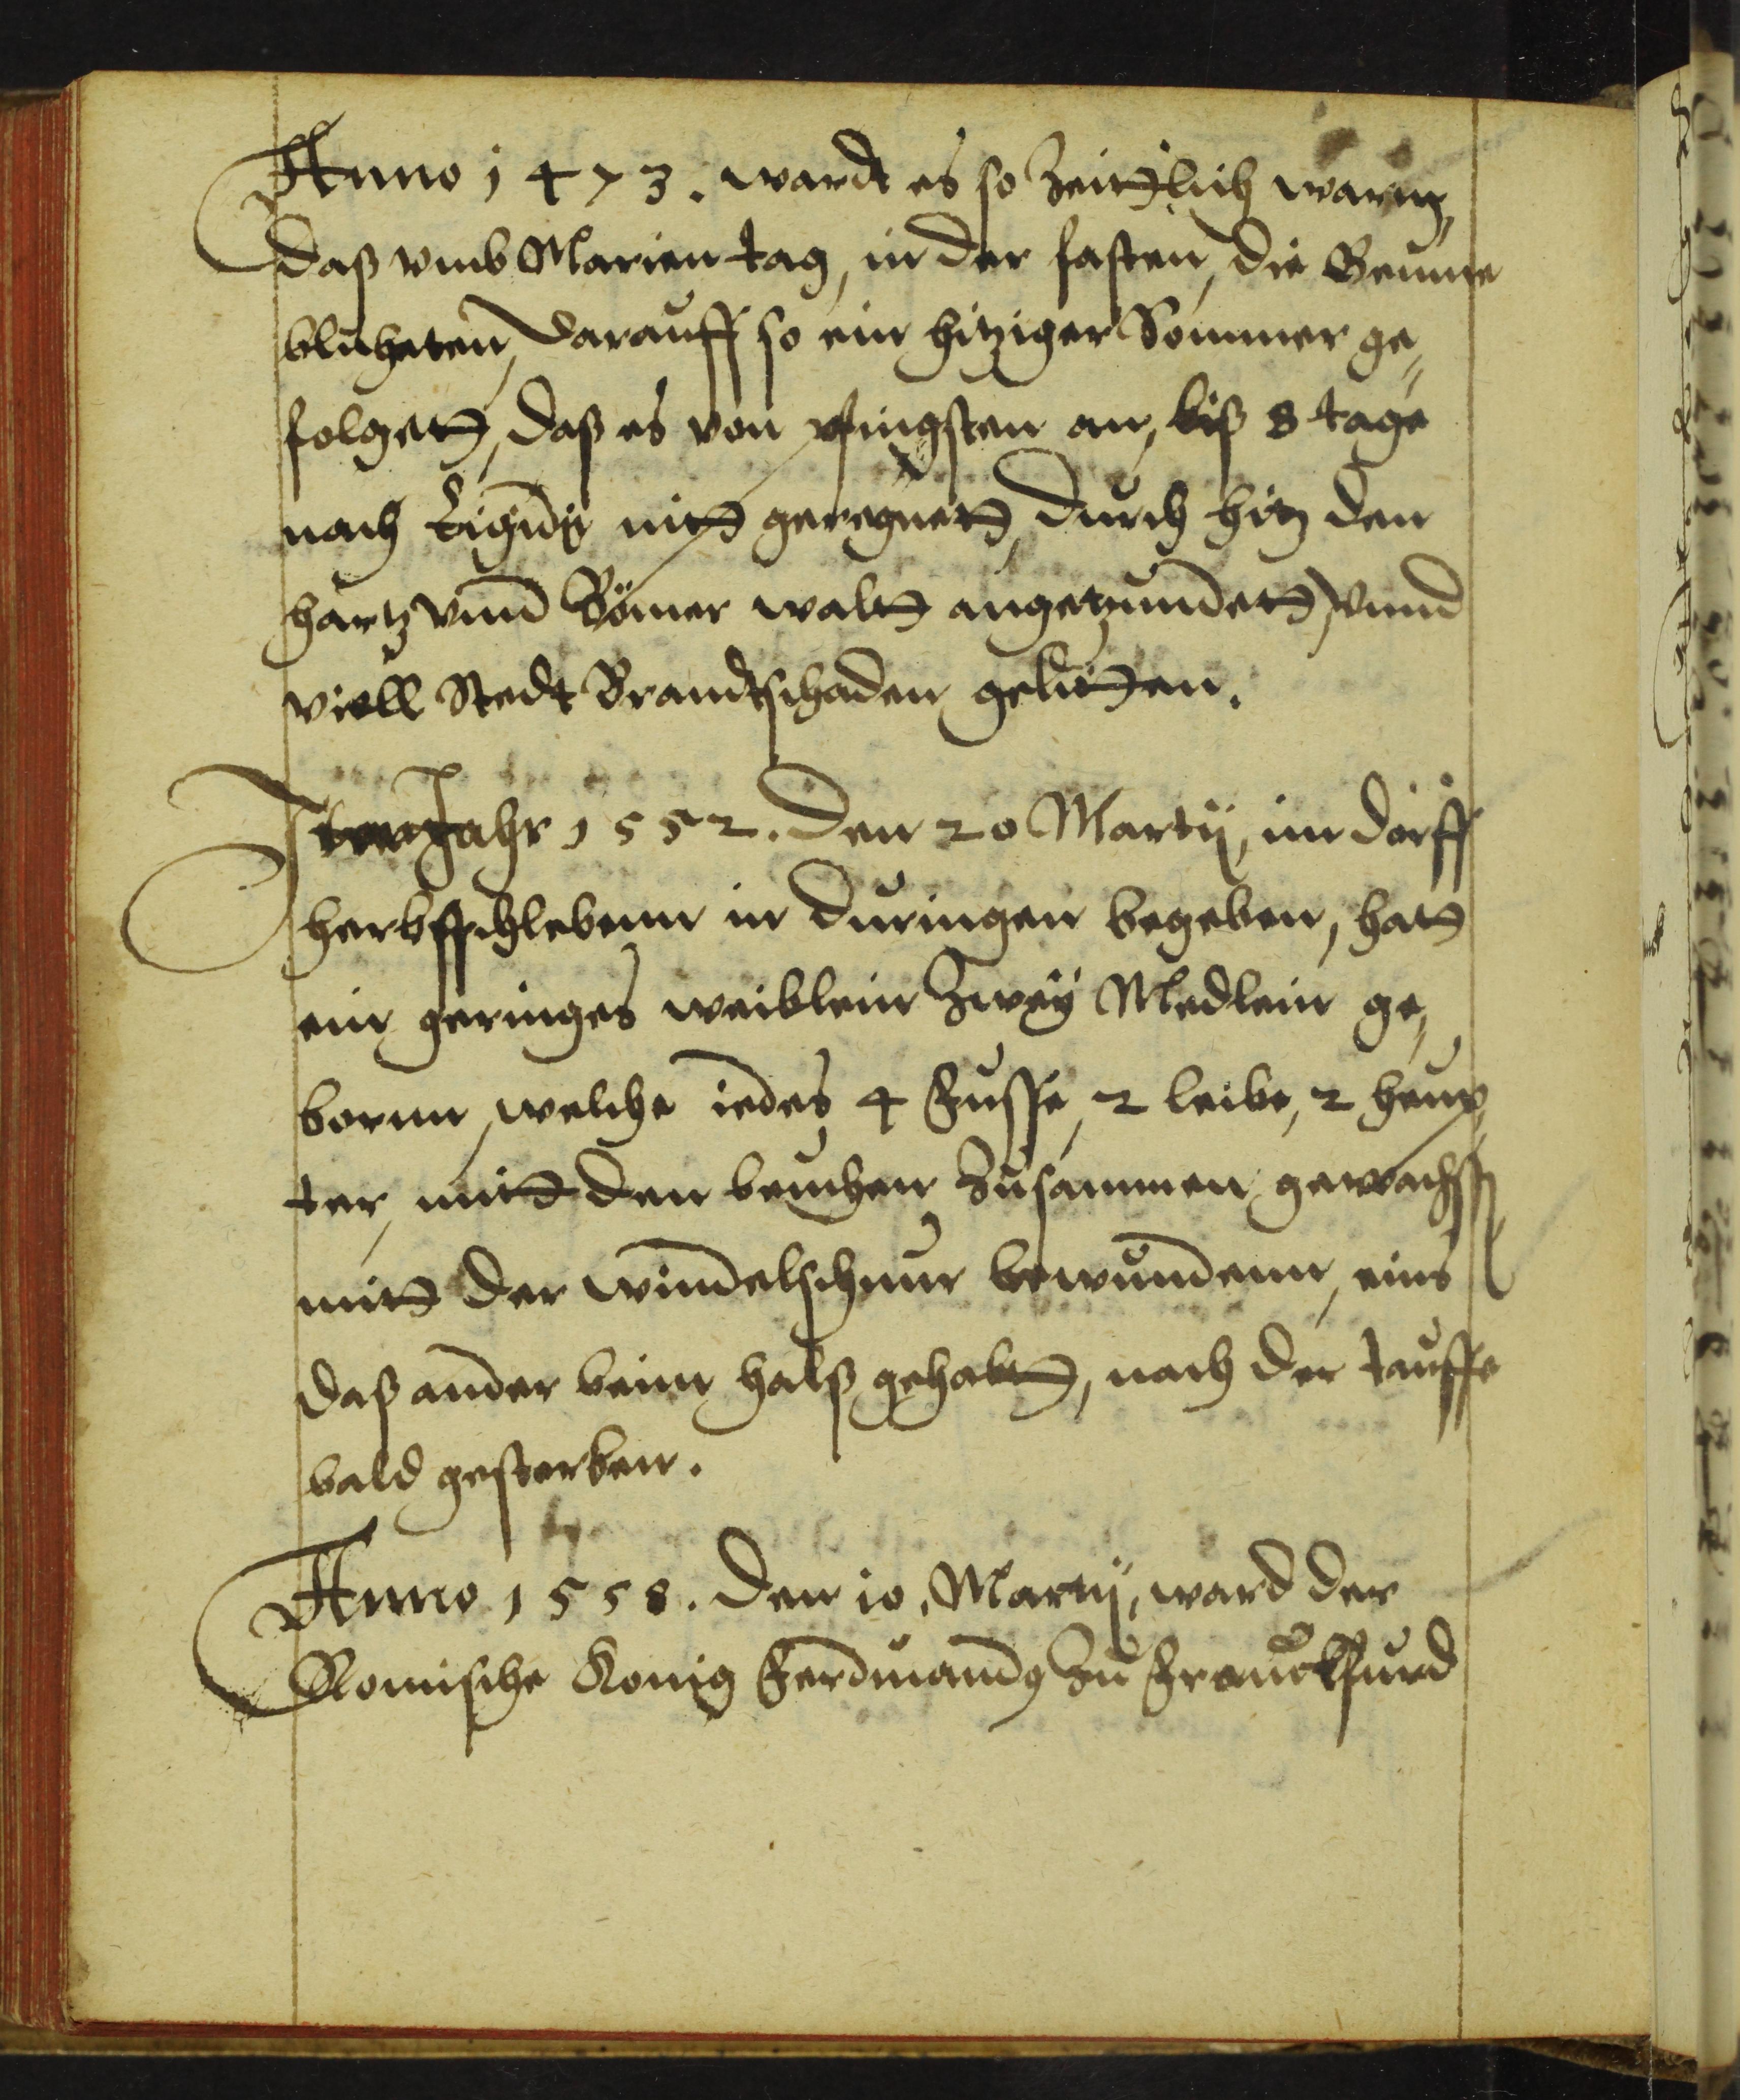 Anno 1473. wardt es so Zeittlich warm,
daß vmb Marien tag, in der fasten, die Beume
bluheten, darauff so ein hitziger Sommer ge,,
folgett, daß es von pfingsten an, biß 8 tage
nach Egidij nitt geregnett, durch hitz den
hartz vnnd Bömer waltt angetzundett, vnnd
viell Stedt Brandtschaden gelitten.
Jahr 1552. den 20 Martij, im dorff
herbsschlebenn in duringen begeben, hatt
ein geringes weiblein Zweÿ Medlein ge,
bornn, welche iedes 4 Fusse, 2 leibe, 2 heup,
ter, mitt den beuchen Zusammen gewachsen
mitt der windelschnur bewundenn, eins
daß ander beim halß gehabtt, nach der tauffe
bald gestorben.
Anno 1558. den 10. Martij, ward der
Romische Konig Ferdinandus Zu Franckfurd